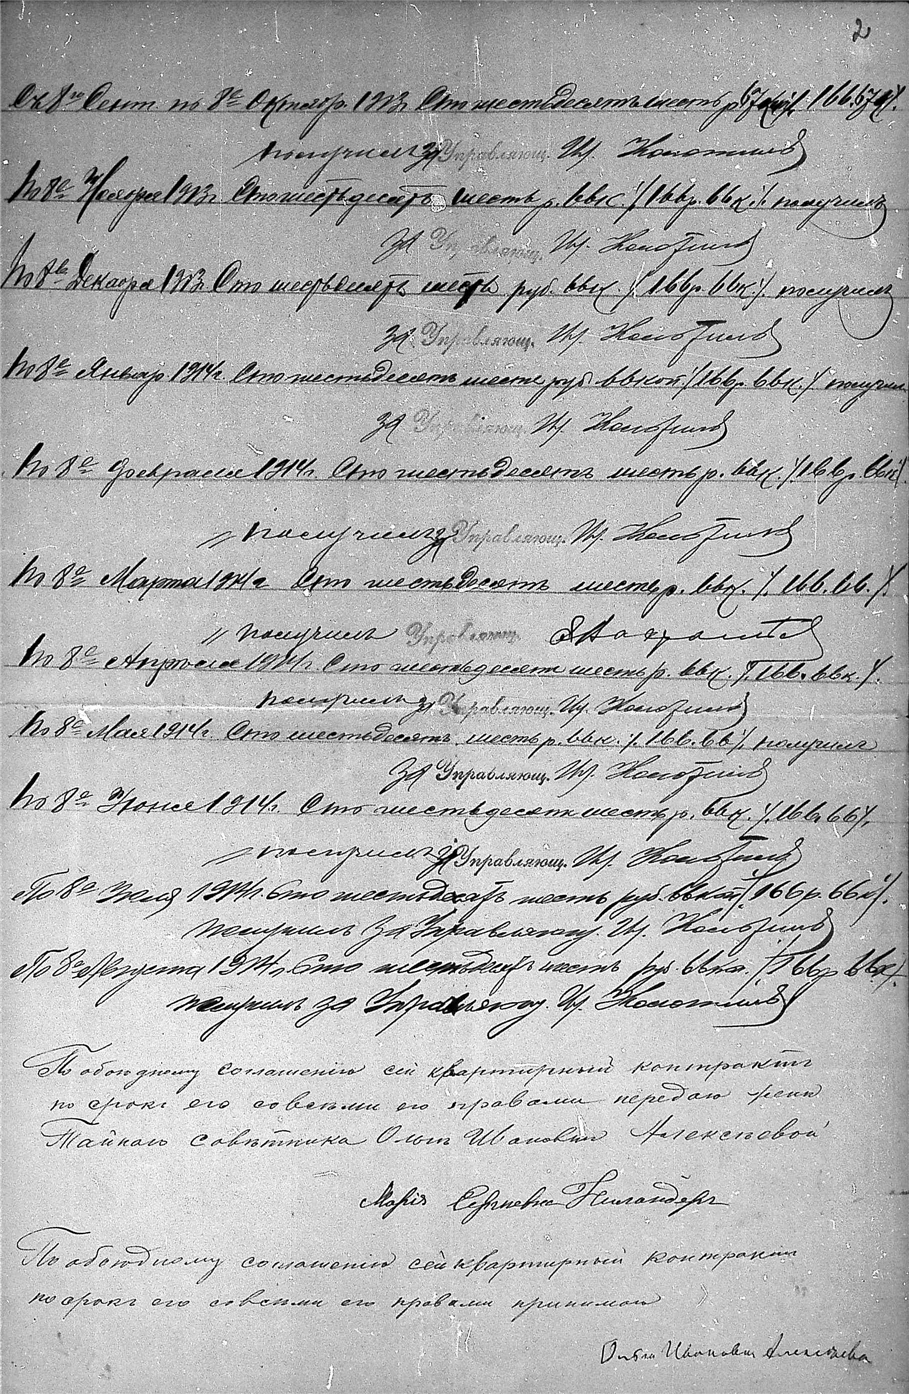 2
Съ 8го Сент. по 8е Октября 1913 Сто шестьдесятъ шесть р. 67 коп. /166.67к/.
получилъ за Управляющ. Ив.
По 8е Ноября 1913г. Сто шестьдесятъ шесть р. 66к. /166р. 66к./ получилъ
за Управляющ. Ив.
По 8е Декабря 1913 Сто шестьдесятъ шесть руб. 66к. /166р. 66к./ получилъ
за Управляющ. Ив.
По 8е Январ. 1914г. Сто шестьдесятъ шесть руб. 66 коп. /166р. 66к./ получил
за Управляющ. Ив.
По 8е Февраля 1914г. Сто шестьдесятъ шесть р. 66к. /166р. 66к/.
" получилъ за Управляющ. Ив.
По 8е Марта 1914г Сто шестьдесятъ шесть р. 66к. /166.66./
" получилъ Управляющ.
По 8е Апрѣля 1914г. Сто шестьдесятъ шесть р. 66к. /166.66к./.
получилъ за Управляющ. Ив.
По 8е Мая 1914г. Сто шестьдесятъ шесть р. 66к. /166.66/ получилъ
за Управляющ. Ив.
По 8е Іюня 1914г. Сто шестьдесятъ шесть р. 66к. /166.66/.
" получилъ за Управляющ. Ив.
По 8е Іюля 1914г. Сто шестьдесятъ шесть руб. 66 коп /166р. 66к/.
получилъ за Управляющ. Ив.
По 8е Августа 1914г. Сто шестьдесятъ шесть руб. 66к. /166р 66к/.
получилъ за Управляющ. Ив.
По обоюдному соглашенію сей квартирный контрактъ
по срокъ его совсѣми его правами передаю женѣ
Тайного совѣтника Ольгѣ Ивановнѣ Алексѣевой
Марія Сергѣевна
По обоюдному соглашенію сей квартирный контрактъ
по срокъ его совсѣми его правами принимаю
Ольга Ивановна Алексѣева